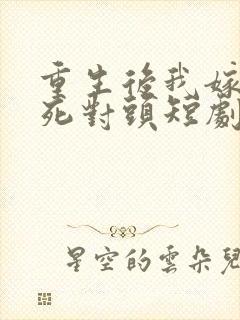 重生後我嫁
死對頭短劇
星空的雲朵兒